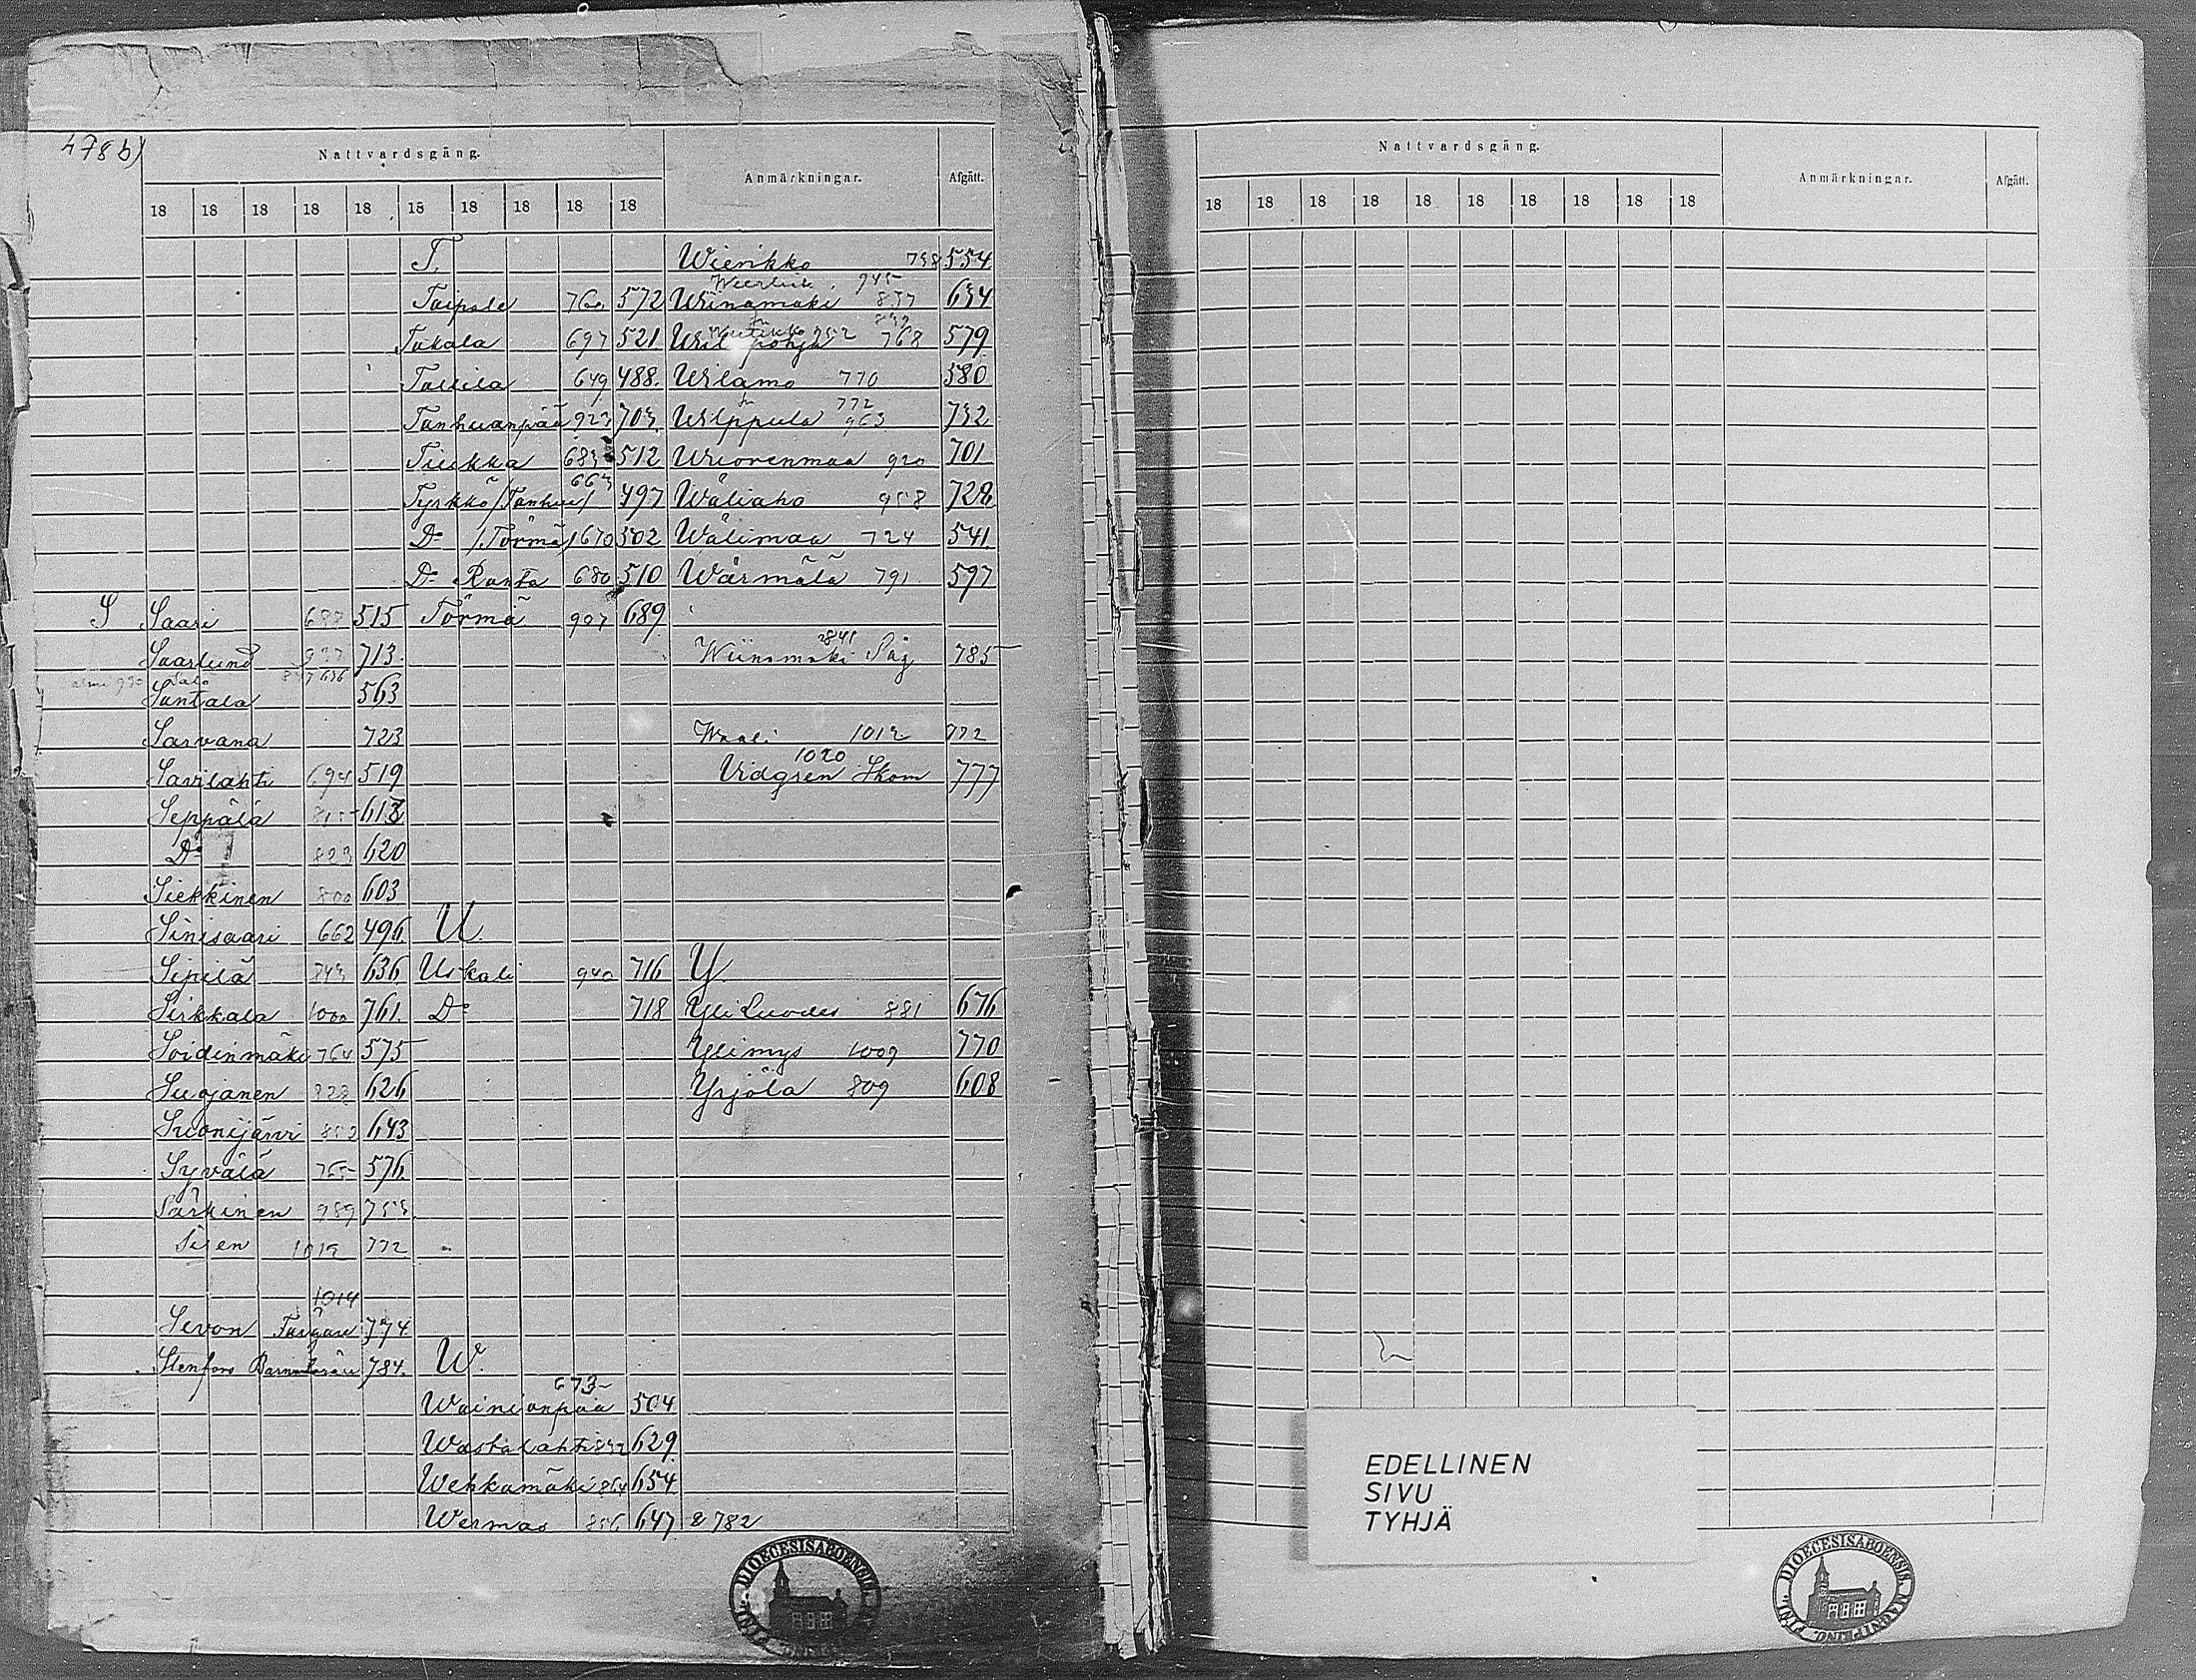 478 b)
Nattvardsgång.
Anmärkningar.
Afgått.
18 18 18 18 18 18 18 18 18 18
S
Saari 515
Saarlund 713
Salo
Santala 563
Sarvana 723
Savilahti 694 519
Seppälä 613
Do 823 620
Siekkinen 800 603
Sinisaari 662 496
Sipilä 843 636
Sirkkala 1000 761
Soidinmäki 764 575
Suojanen 626
Suonijärvi 852 643
Syvälä 765 576
Särkinen 989 753
Siren 1012 772
1014
Sevon Färgare 774
Stenfors 784.
T.
Taipale 760 572
Takala 697 521
Tallila 649 488.
Tanhuanpää 923 703
Tiukka 683 512
663
Tyrkkö /Tanhua/ 497
Do /Törmä/ 670 502
Do Ranta 680 510
Törmä 907 689
U.
Uskali 940 716
Do 718
W.
673
Wainionpää 504
Wastalahti 832 629
Wehkamäki 864 654
Wermas 856 647 & 782
Wierikko 738 554
945
Wiinamäki 837 634
768 579
Wilamo 770 580
772
Wilppula 963 732
Wuorenmaa 920 701
Wäliaho 958 728
Wälimaa 724 541
Wärmälä 791 597
Wiinamäki Såg 785
Waali 1012 772
1020
Vidgren Skom 777
Y.
Yli Luodes 881 676
Ylimys 1009 770
Yrjölä 809 608
DIOECESIS ABOENSIS
Nattvardsgång.
Anmärkningar.
Afgått.
18 18 18 18 18 18 18 18 18 18
EDELLINEN
SIVU
TYHJÄ
DIOECESIS ABOENSIS